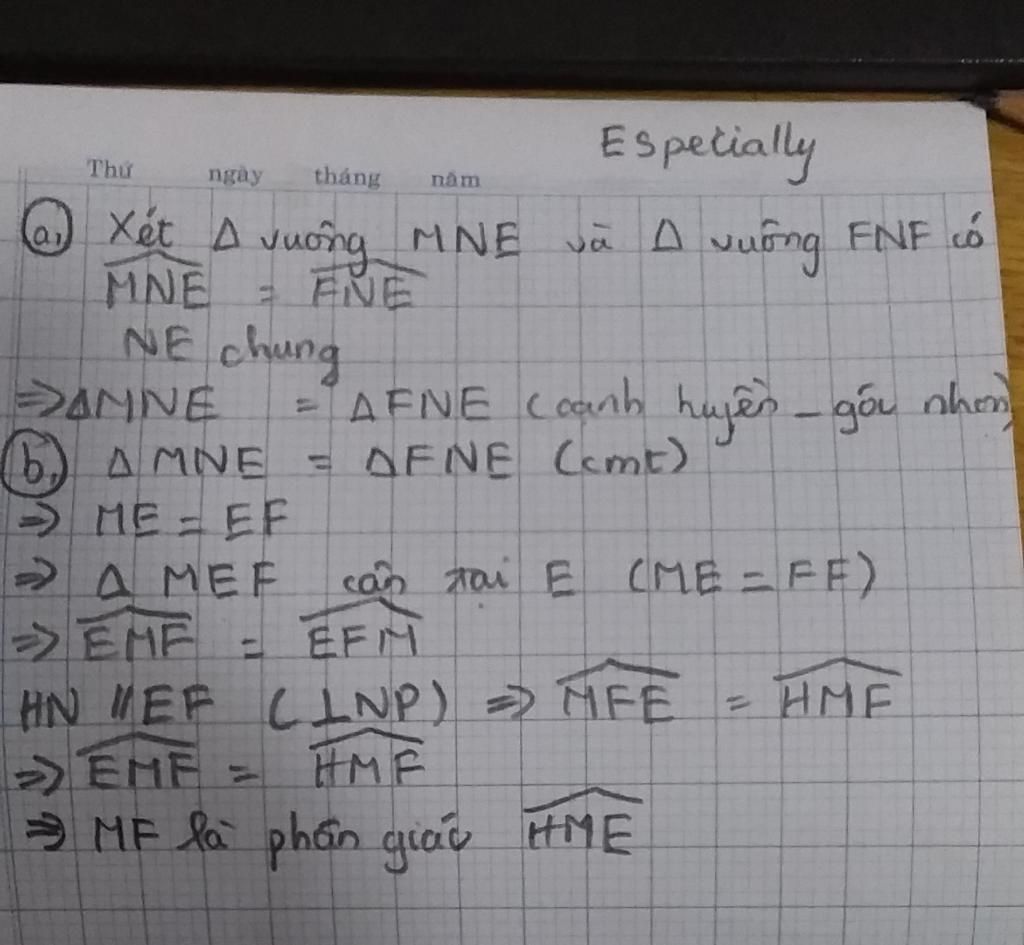 Especially
Thứ ngày tháng năm
a, Xét Δ vuông MNE và Δ vuông FNF có
MNE = FNE
NE chung
⇒ΔMNE = ΔFNE (cạnh huyền - góc nhọn)
b, ΔMNE = ΔFNE (cmt)
⇒ ME = EF
⇒ Δ MEF cân tại E (ME = FF)
⇒ EMF = EFM
HN // EF (⊥NP) ⇒ MFE = HMF
⇒ EMF = HMF
⇒ MF là phân giác HME